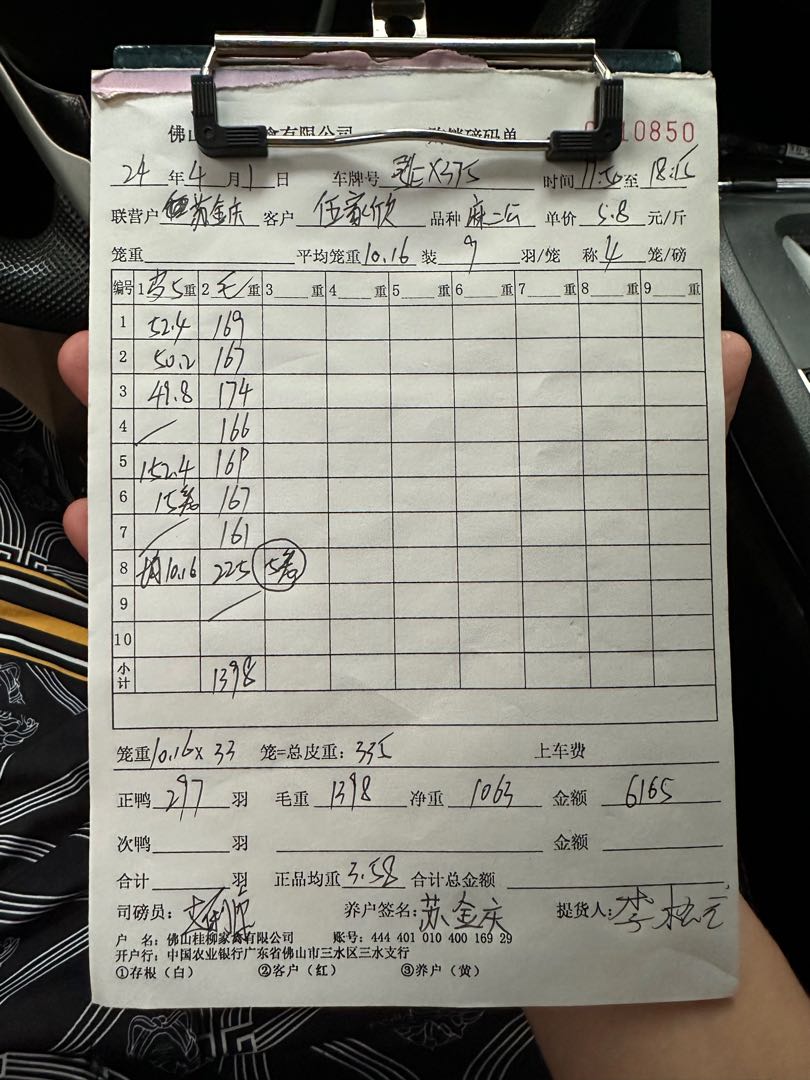 佛山 禽有限公司 购销磅码单 10850
24 年 4 月 1 日 车牌号 X375 时间 11:50 至 18:15
联营户 苏金庆 客户 伍家欣 品种 麻二公 单价 5.8 元/斤
笼重 平均笼重 10.16 装 9 羽/笼 称 4 笼/磅
编号 1 笼5 重 2 毛 重 3 重 4 重 5 重 6 重 7 重 8 重 9 重
1 52.4 169
2 50.2 167
3 49.8 174
4 166
5 152.4 169
6 15笼 167
7 161
8 均10.16 225 5笼
9
10
小计 1398
笼重 10.16 x 33 笼=总皮重: 335 上车费
正鸭 297 羽 毛重 1398 净重 1063 金额 6165
次鸭 羽 金额
合计 羽 正品均重 3.58 合计总金额
司磅员: 养户签名: 苏金庆 提货人: 李
户 名: 佛山桂柳家禽有限公司 账号: 444 401 010 400 169 29
开户行: 中国农业银行广东省佛山市三水区三水支行
①存根（白） ②客户（红） ③养户（黄）